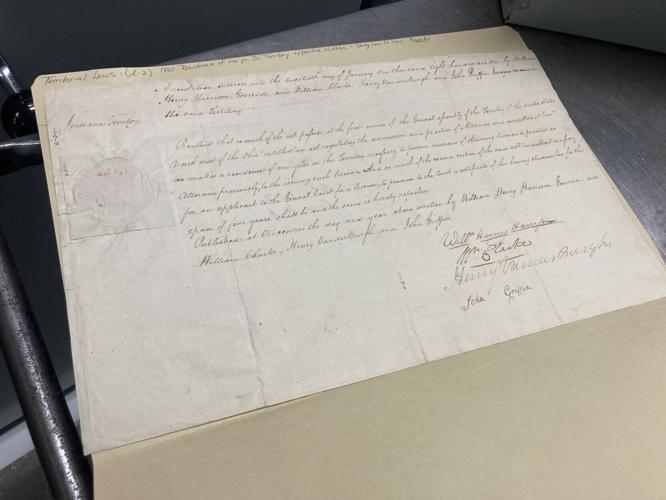 Territorial Laws: (A-2) 1801 Residence of one yr. in Territory to practice + study law to 4 yrs. Repealed
A resolution entered into the twentieth day of January one thousand eight hundred and one by William
Henry Harrison Governor, and William Clarke, Henry Vander Burgh and John Griffin Judges in and over
the said Territory.
Indiana Territory
Resolved that so much of the act passed at the first session of the General assembly of the Territory of the United States
North west of the Ohio "entitled" an act regulating the admission and practice of Attornies and councellors at law"
as makes a residence of one year in the Territory necessary to
Attornies previously, to the receiving such licence, And so much of the section of the said act as makes it necessary
for an applicant to the General Court for a licence, to produce to the Court a certificate of his having studied law for the
space of four years shall be and the same is hereby repealed.
Published at Vincennes the day and year above written by William Henry Harrison Governor, and
William Clarke, Henry Vander Burgh and John Griffin
Willm Henry Harrison
Wm Clarke
Henry Vander Burgh
John Griffin